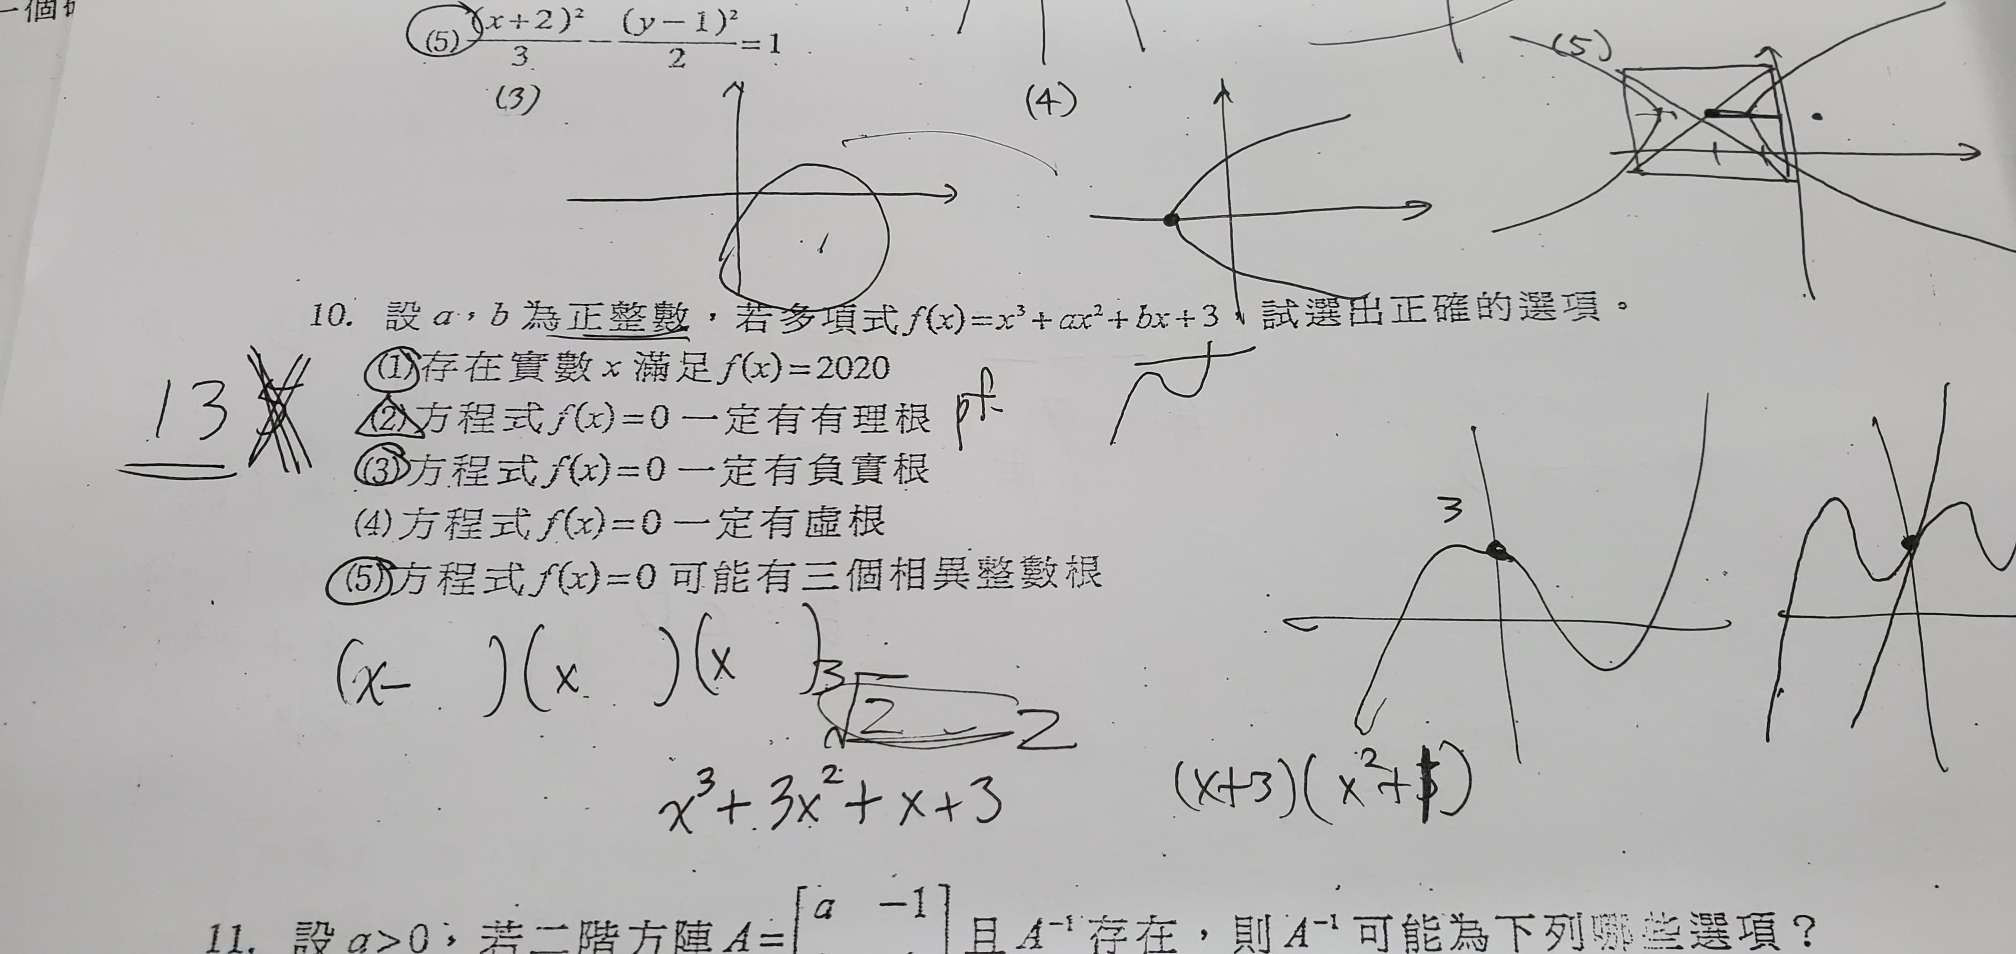 一個
(5) (x+2)²/3 − (y−1)²/2 = 1
(5)
(3)
(4)
10. 設 a，b 為正整數，若多項式 f(x)=x³+ax²+bx+3，試選出正確的選項。
(1)存在實數 x 滿足 f(x)=2020
13
(2)方程式 f(x)=0 一定有有理根 pf
(3)方程式 f(x)=0 一定有負實根
(4)方程式 f(x)=0 一定有虛根
3
(5)方程式 f(x)=0 可能有三個相異整數根
(x- )(x )(x )
3
2
2
x³+3x²+x+3
(x+3)(x²+1)
11. 設 a>0，若二階方陣 A=[a −1 ] 且 A⁻¹ 存在，則 A⁻¹ 可能為下列哪些選項？